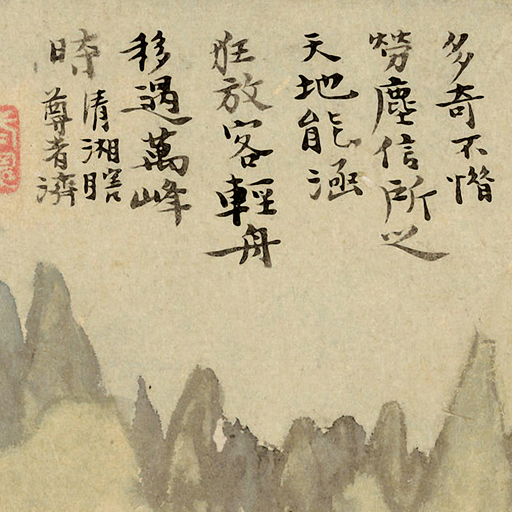 多奇不惜
勞塵信所之
天地能涵
狂放客輕舟
移過萬峰
時
清湘瞎
尊者濟